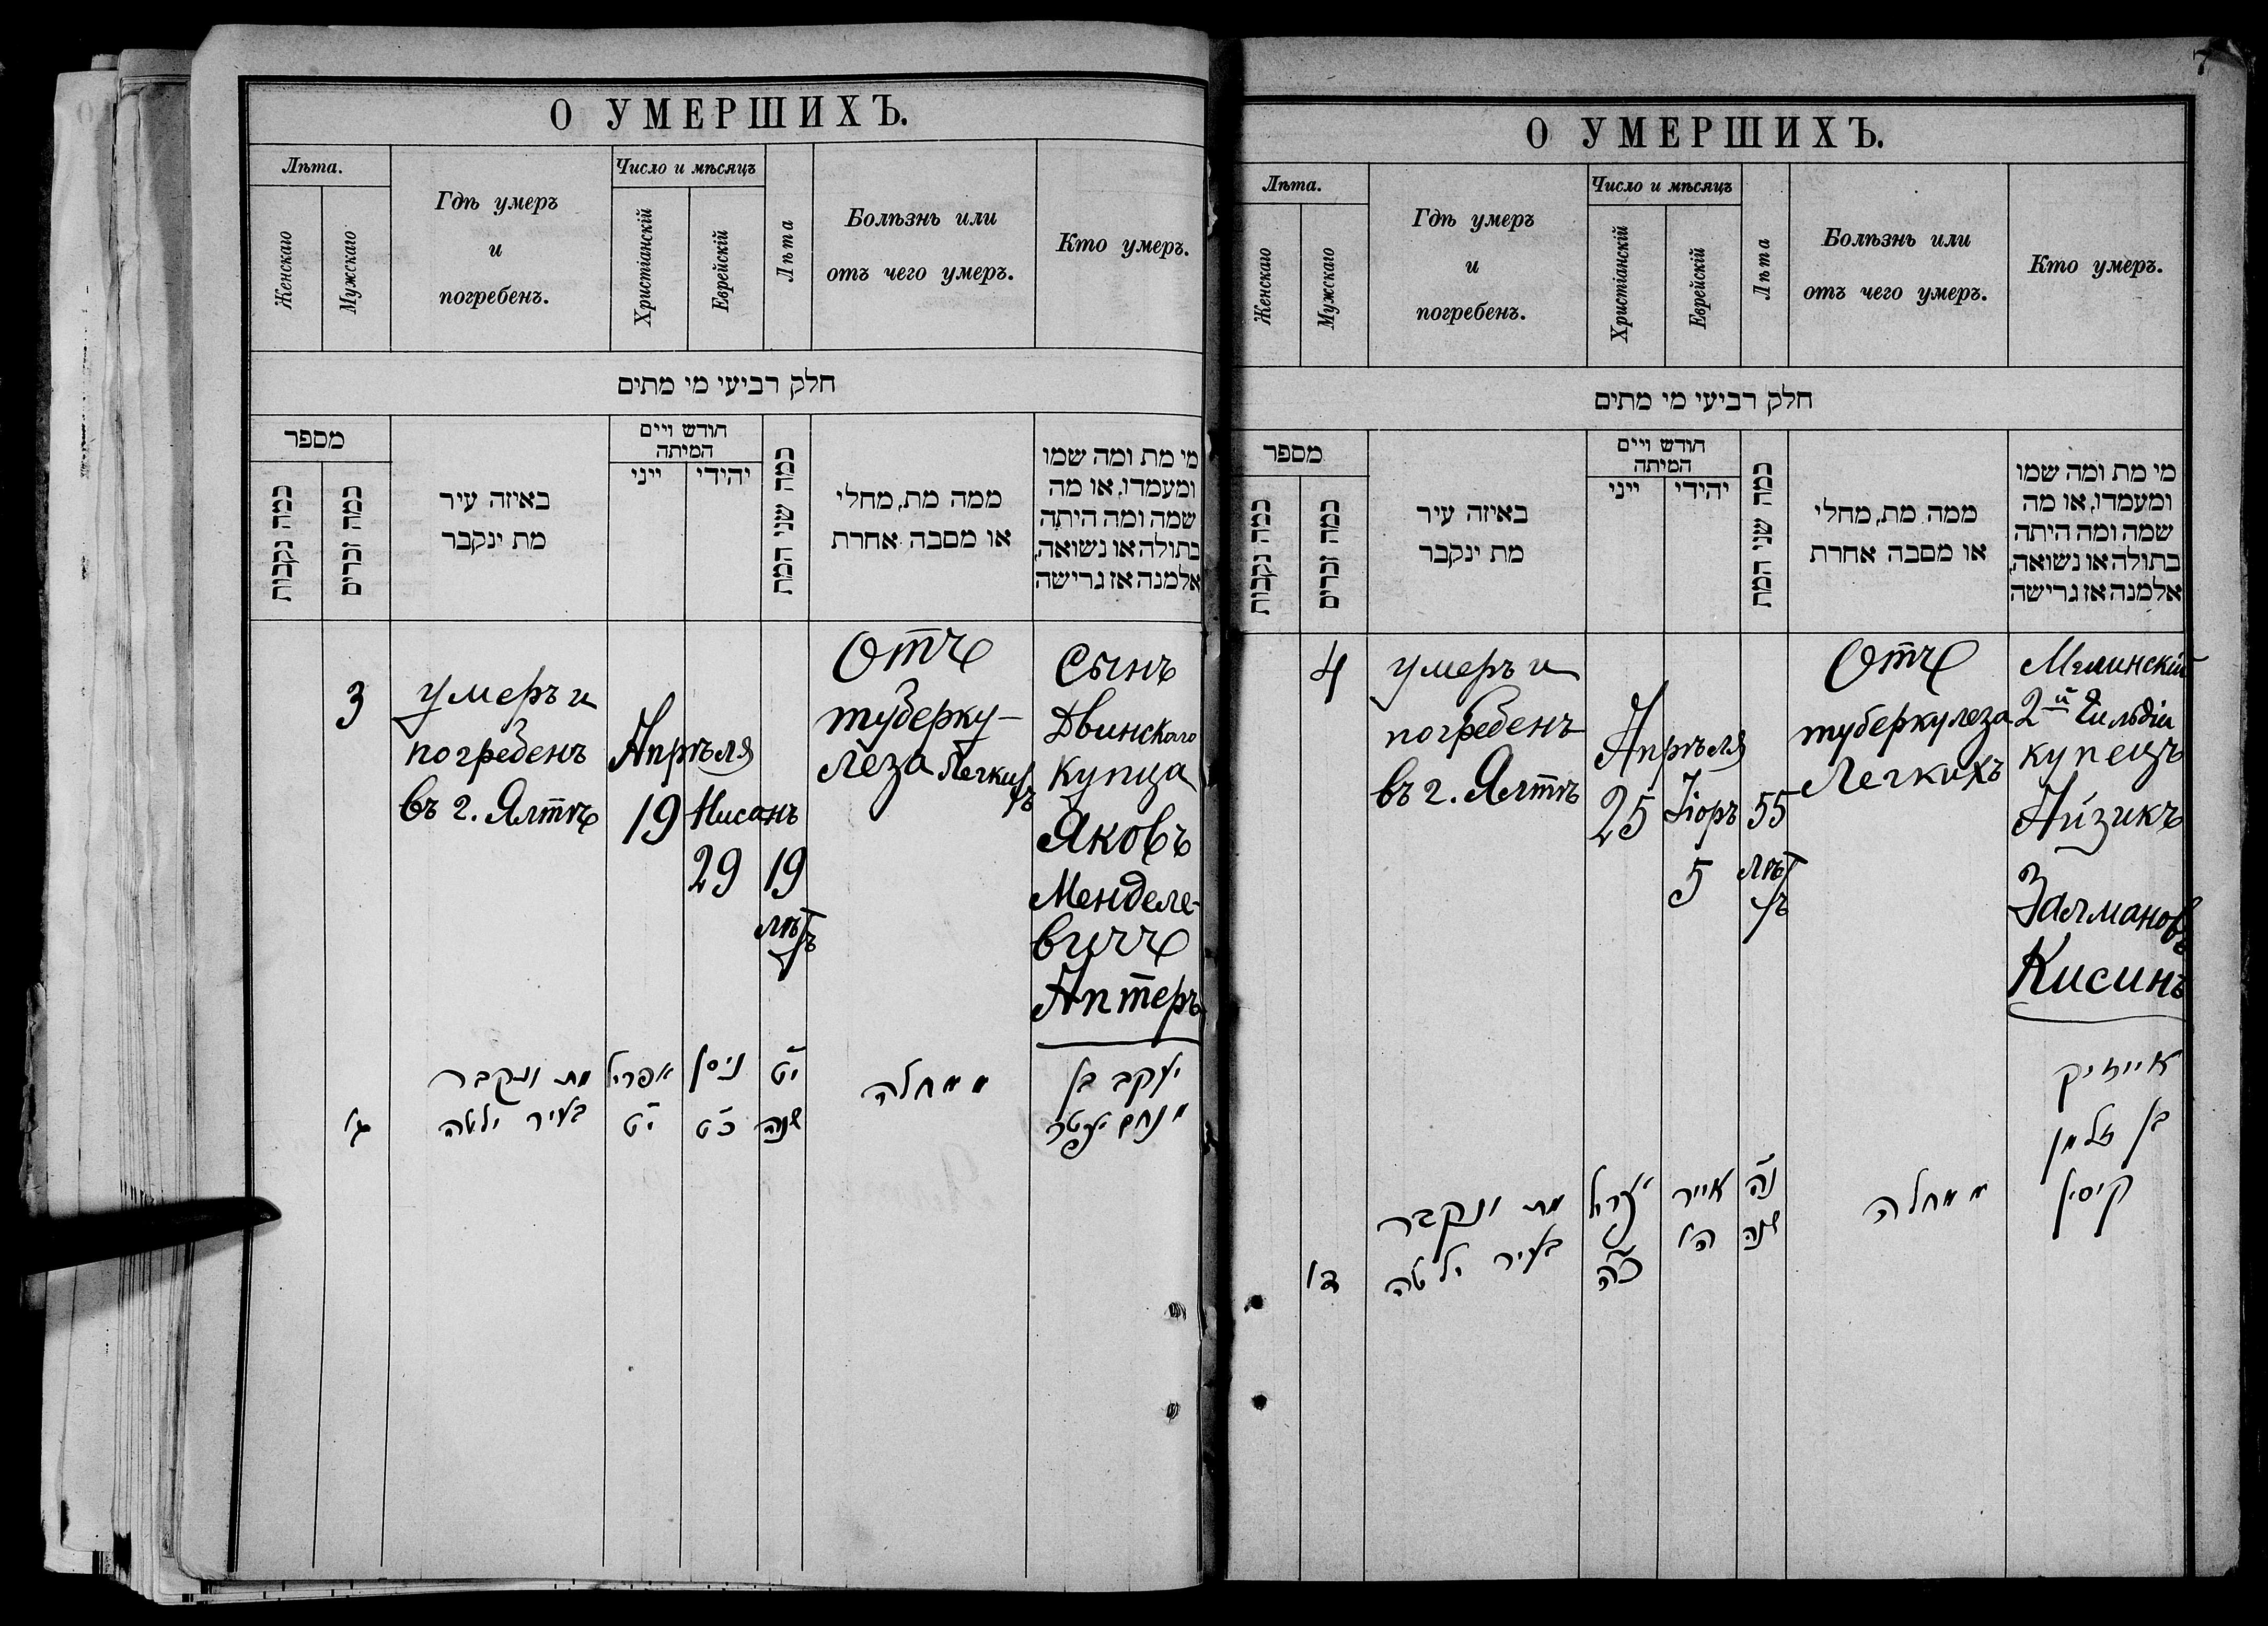 О УМЕРШИХЪ.
Лѣта.
Женскаго
Мужскаго
Гдѣ умеръ
и
погребенъ.
Число и мѣсяцъ
Христіанскій
Еврейскій
Лѣта
Болѣзнь или
отъ чего умеръ.
Кто умеръ.
חלק רביעי מי מתים
מספר
כמה נקבות
כמה זכרים
באיזה עיר
מת ינקבר
חודש ויים
המיתה
ייני
יהידי
כמה שני המת
ממה מת, מחלי
או מסבה אחרת
מי מת ומה שמו
ומעמדו, או מה
שמה ומה היתה
בתולה או נשואה,
אלמנה אז גרישה
3
умеръ и
погребенъ
въ г. Ялтѣ
Апрѣля
19
Нисанъ
29
19
лѣтъ
Отъ
туберку-
леза легкихъ
Сынъ
Двинскаго
купца
Яковъ
Менделе-
вичъ
Аптеръ
ג'
מת ונקבר
בעיר ילטה
אפריל
י"ט
ניסן
כ"ט
י"ט
שנה
ממחלה
יעקב בן
מנחם
7
О УМЕРШИХЪ.
Лѣта.
Женскаго
Мужскаго
Гдѣ умеръ
и
погребенъ.
Число и мѣсяцъ
Христіанскій
Еврейскій
Лѣта
Болѣзнь или
отъ чего умеръ.
Кто умеръ.
חלק רביעי מי מתים
מספר
כמה נקבות
כמה זכרים
באיזה עיר
מת ינקבר
חודש ויים
המיתה
ייני
יהידי
כמה שני המת
ממה מת, מחלי
או מסבה אחרת
מי מת ומה שמו
ומעמדו, או מה
שמה ומה היתה
בתולה או נשואה,
אלמנה אז גרישה
4
умеръ и
погребенъ
въ г. Ялтѣ
Апрѣля
25
Іоръ
5
55
лѣтъ
Отъ
туберкулеза
Легкихъ
Мглинскій
2й Гильдіи
купецъ
Айзикъ
Залмановъ
Кисинъ
ד'
מת ונקבר
בעיר ילטה
כ"ה
אייר
ה'
נ"ה
שנה
ממחלה
אייזיק
בן זלמן
קיסין